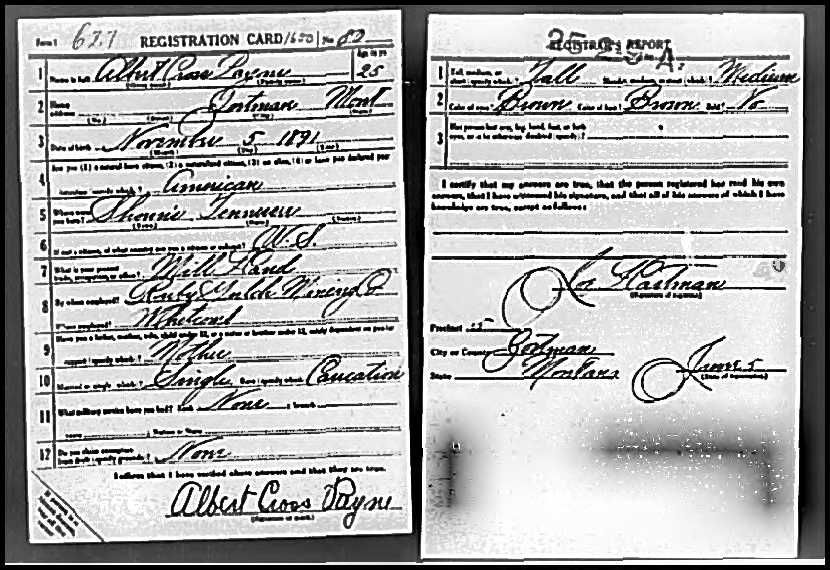 Form 1 627 REGISTRATION CARD/650 No 80
1 Name in full Albert Cross Payne Age in yrs 25
(Given name) (Family name)
2 Home address Zortman Mont
(No.) (Street) (City) (State)
3 Date of birth November 5 1891
(Month) (Day) (Year)
Are you (1) a natural born citizen, (2) a naturalized citizen, (3) an alien, (4) or have you declared your
4 intention (specify which)? American
5 Where were you born? Tennessee
(Town) (State) (Nation)
6 If not a citizen, of what country are you a citizen or subject? U. S.
7 What is your present trade, occupation, or office? Mill Hand
8 By whom employed? Ruby Gulch Mining Co
Where employed? Whitcomb
Have you a father, mother, wife, child under 12, or a sister or brother under 12, solely dependent on you for
9 support (specify which)? Mother
10 Married or single (which)? Single Race (specify which)? Caucation
11 What military service have you had? Rank None ; branch
years ; Nation or State
12 Do you claim exemption from draft (specify grounds)? None
I affirm that I have verified above answers and that they are true.
Albert Cross Payne
(Signature or mark)
35 A.
REGISTRAR'S REPORT
1 Tall, medium, or short (specify which)? Tall Slender, medium, or stout (which)? Medium
2 Color of eyes? Brown Color of hair? Brown Bald? No
3 Has person lost arm, leg, hand, foot, or both
eyes, or is he otherwise disabled (specify)?
I certify that my answers are true, that the person registered has read his own
answers, that I have witnessed his signature, and that all of his answers of which I have
knowledge are true, except as follows:
Hartman
(Signature of registrar)
Precinct
City or County Zortman
State Montana June 5
(Date of registration)